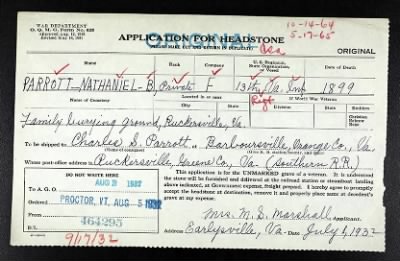 WAR DEPARTMENT
O. Q. M. G. Form No. 623
APPLICATION FOR HEADSTONE
(PLEASE MAKE OUT AND RETURN IN DUPLICATE)
10-14-64
5-17-65
ORIGINAL
Name
Rank
Company
U. S. Regiment, State Organization, Vessel
Date of Death
PARROTT, NATHANIEL-B,
Private
F
13th Va. Inf
1899
Regt
Name of Cemetery
Located in or near
If World War Veteran
City
State
Division
State
Family burying ground, Ruckersville, Va.
To be shipped to Charles S. Parrott, Barboursville, Orange Co., Va.
Whose post-office address is Ruckersville, Greene Co., Va. (Southern R.R.)
DO NOT WRITE HERE
This application is for the UNMARKED grave of a veteran. It is understood
the stone will be furnished and delivered at the railroad station or steamboat landing
above indicated, at Government expense, freight prepaid. I hereby agree to promptly
accept the headstone at destination, remove it and properly place same at decedent's
grave at my expense.
To A. G. O. AUG 3 1932
Ordered PROCTOR, VT. AUG 5 1932
464295
9/17/32
Mrs. M. D. Marshall, Applicant.
Earlysville, Va. Date July 1, 1932